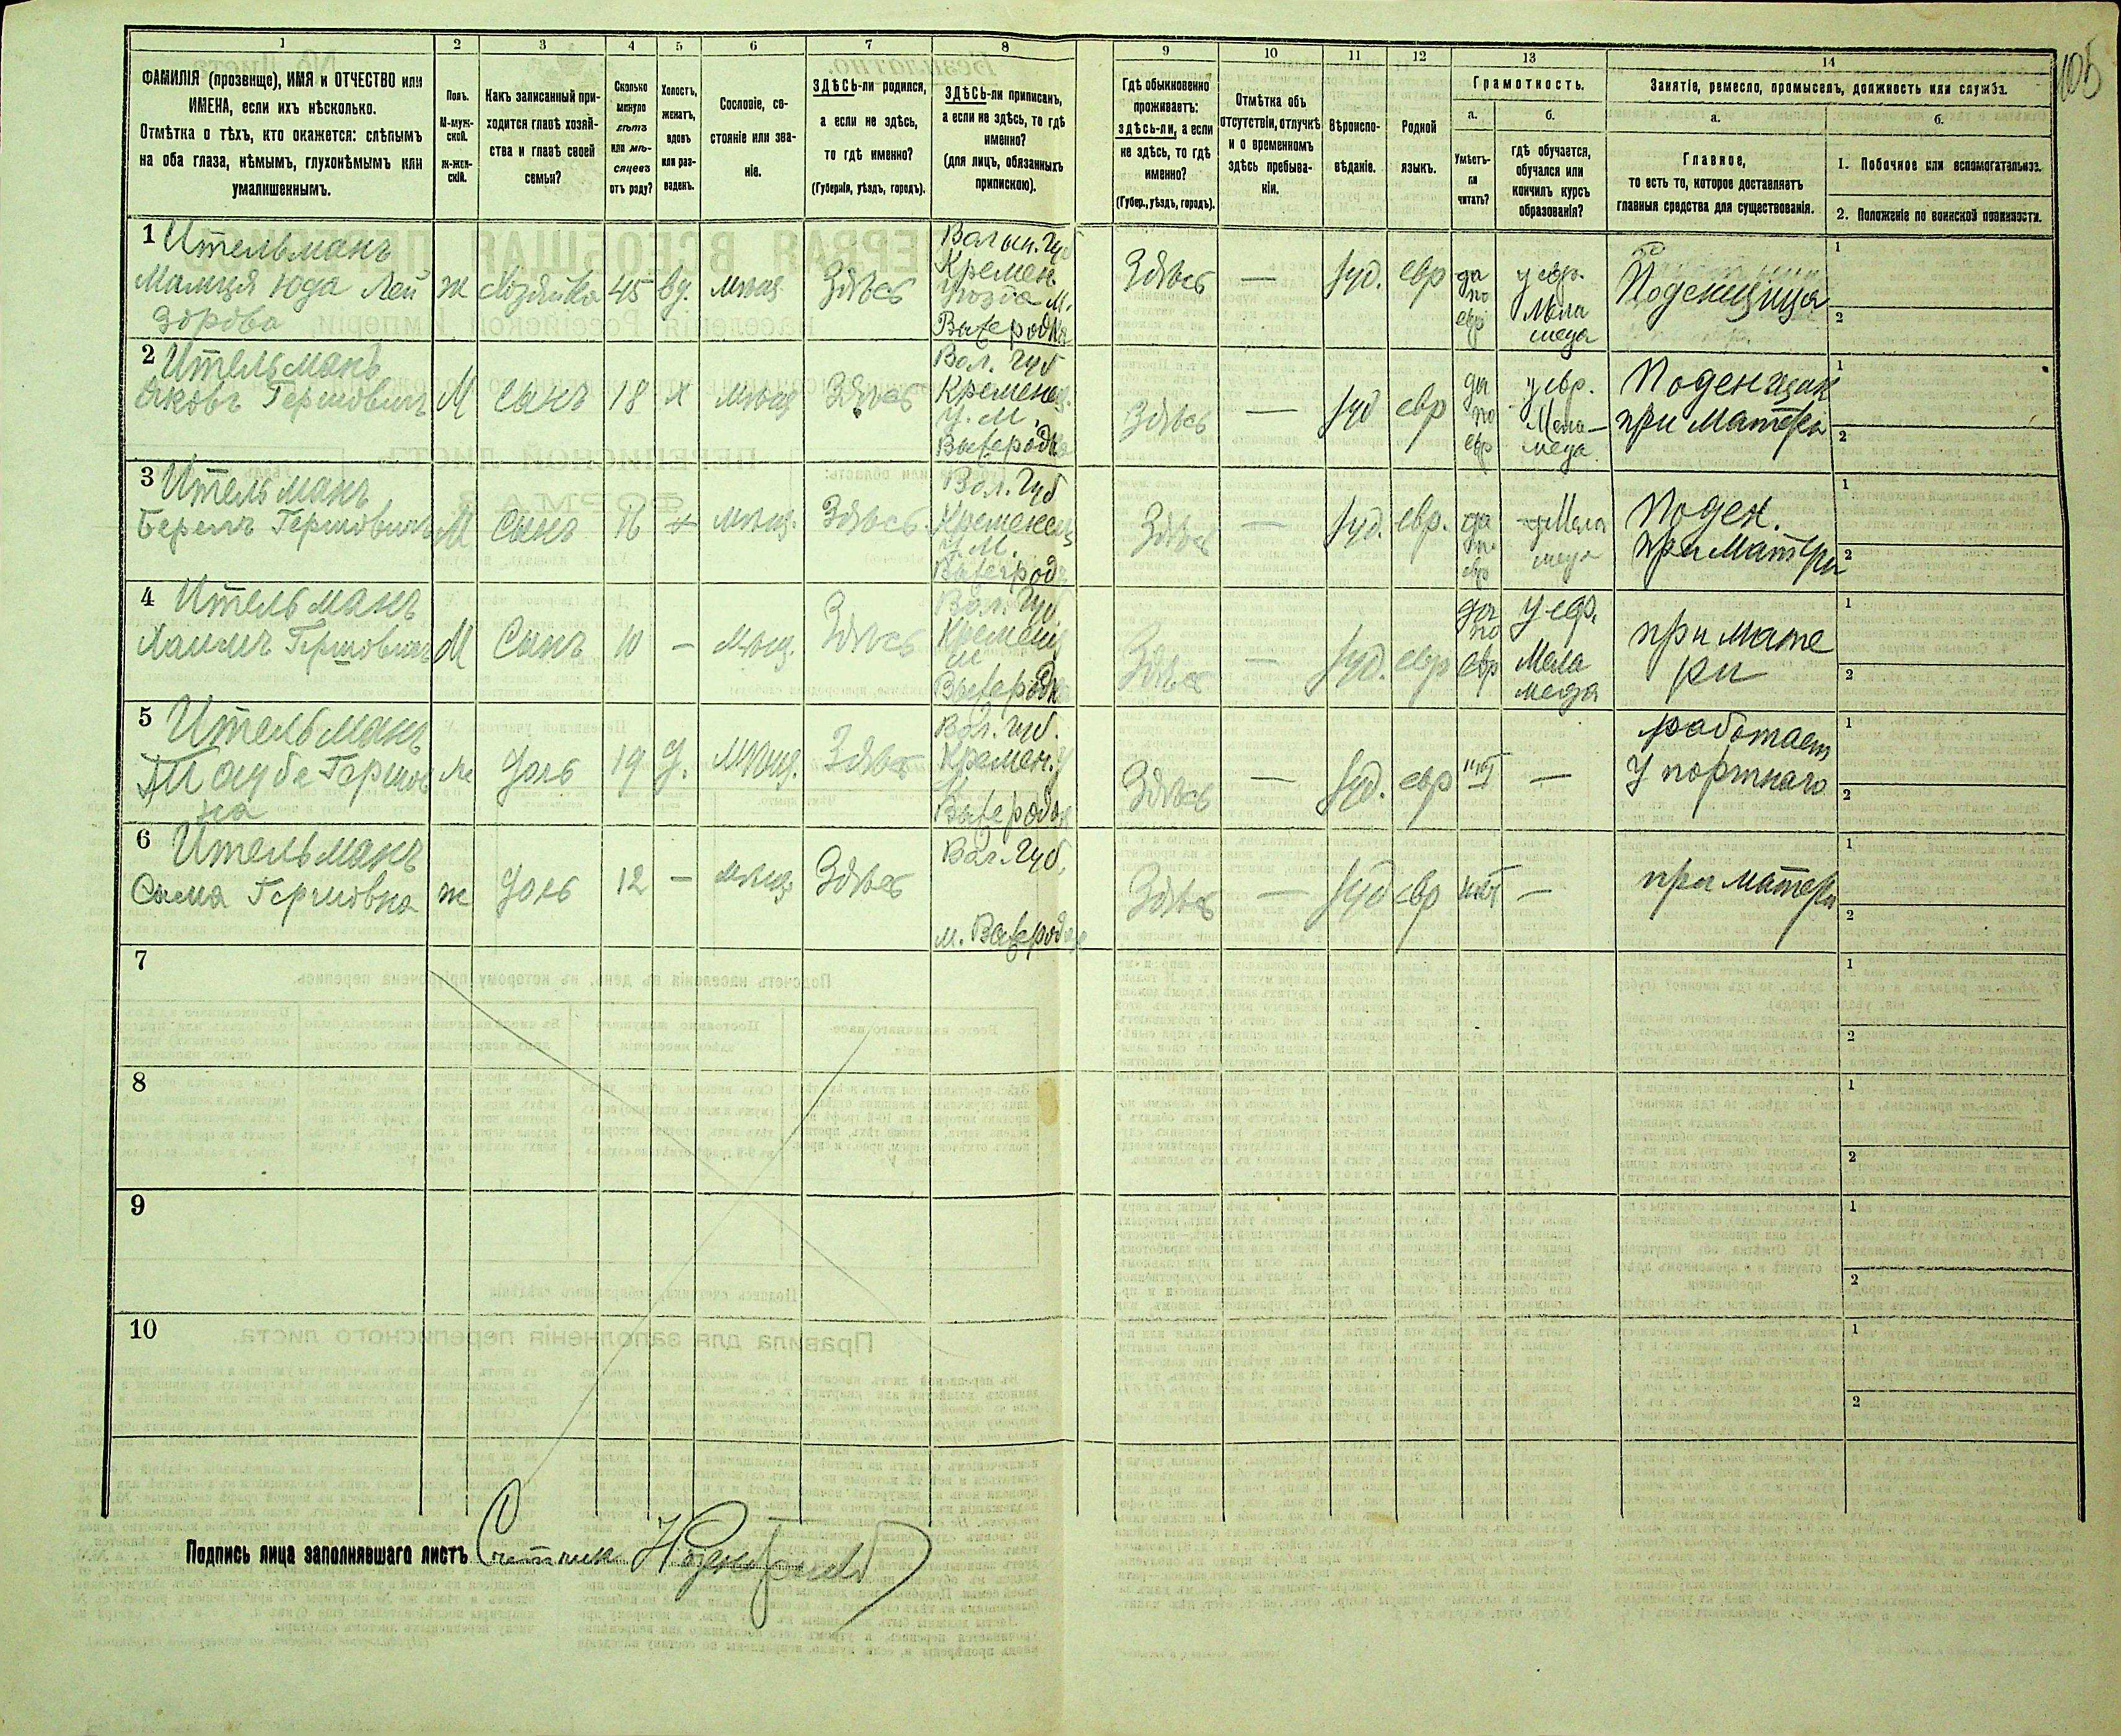 105
1 2 3 4 5 6 7 8 9 10 11 12 13 14
ФАМИЛІЯ (прозвище), ИМЯ и ОТЧЕСТВО или
ИМЕНА, если ихъ нѣсколько.
Отмѣтка о тѣхъ, кто окажется: слѣпымъ
на оба глаза, нѣмымъ, глухонѣмымъ или
умалишеннымъ.
Полъ.
М-муж-
ской.
Ж-жен-
скій.
Какъ записанный при-
ходится главѣ хозяй-
ства и главѣ своей
семьи?
Сколько
минуло
лѣтъ
или мѣ-
сяцевъ
отъ роду?
Холостъ,
женатъ,
вдовъ
или раз-
веденъ.
Сословіе, со-
стояніе или зва-
ніе.
ЗДѢСЬ-ли родился,
а если не здѣсь,
то гдѣ именно?
(Губернія, уѣздъ, городъ).
ЗДѢСЬ-ли приписанъ,
а если не здѣсь, то гдѣ
именно?
(для лицъ, обязанныхъ
припискою).
Гдѣ обыкновенно
проживаетъ:
здѣсь-ли, а если
не здѣсь, то гдѣ
именно?
(Губер., уѣздъ, городъ).
Отмѣтка объ
отсутствіи, отлучкѣ
и о временномъ
здѣсь пребыва-
ніи.
Вѣроиспо-
вѣданіе.
Родной
языкъ.
Грамотность.
а.
Умѣетъ-
ли
читать?
б.
гдѣ обучается,
обучался или
кончилъ курсъ
образованія?
Занятіе, ремесло, промыселъ, должность или служба.
а.
Главное,
то есть то, которое доставляетъ
главныя средства для существованія.
б.
1. Побочное или вспомогательное.
2. Положеніе по воинской повинности.
1 Ительманъ
Юда Лей
Ж Хозяйка 45 вд. мѣщ Здѣсь
Волын. Губ
Кремен
Уѣзда м.
Здѣсь — Іуд. евр
да
по
евр
у евр.
Мела
меда
Поденщица
1
2
2 Ительманъ
Яковъ Гершовичъ М Сынъ 18 х мѣщ Здѣсь
Вол. Губ
Кременец.
У. М.
Здѣсь — Іуд евр
да
по
евр
у евр.
Мела-
меда
Поденщик
при Матери
1
2
3 Ительманъ
Гершовичъ М Сынъ 16 х мѣщ. Здѣсь
Вол. Губ
Кременец
У. М.
Здѣсь — Іуд. евр.
да
по
евр
у Мела
меда
Поден.
при Матери
1
2
4 Ительманъ
Хаимъ Гершовичъ М Сынъ 10 — мѣщ. Здѣсь
Вол. Губ.
Кременц
м
Здѣсь — Іуд. евр
да
по
евр
у евр.
Мела
меда
при мате
ри
1
2
5 Ительманъ
Тауба Гершов
на
ж дочь 19 д. мѣщ. Здѣсь
Вол. Губ.
Кремен. У
Здѣсь — Іуд. евр нѣт —
работает
у портнаго
1
2
6 Ительманъ
Сима Гершовна ж дочь 12 — мѣщ Здѣсь
Вол. Губ.
Здѣсь — Іуд евр нѣт —
при матери
1
2
7
1
2
8
1
2
9
1
2
10
1
2
Подпись лица заполнявшаго листъ Счетчик